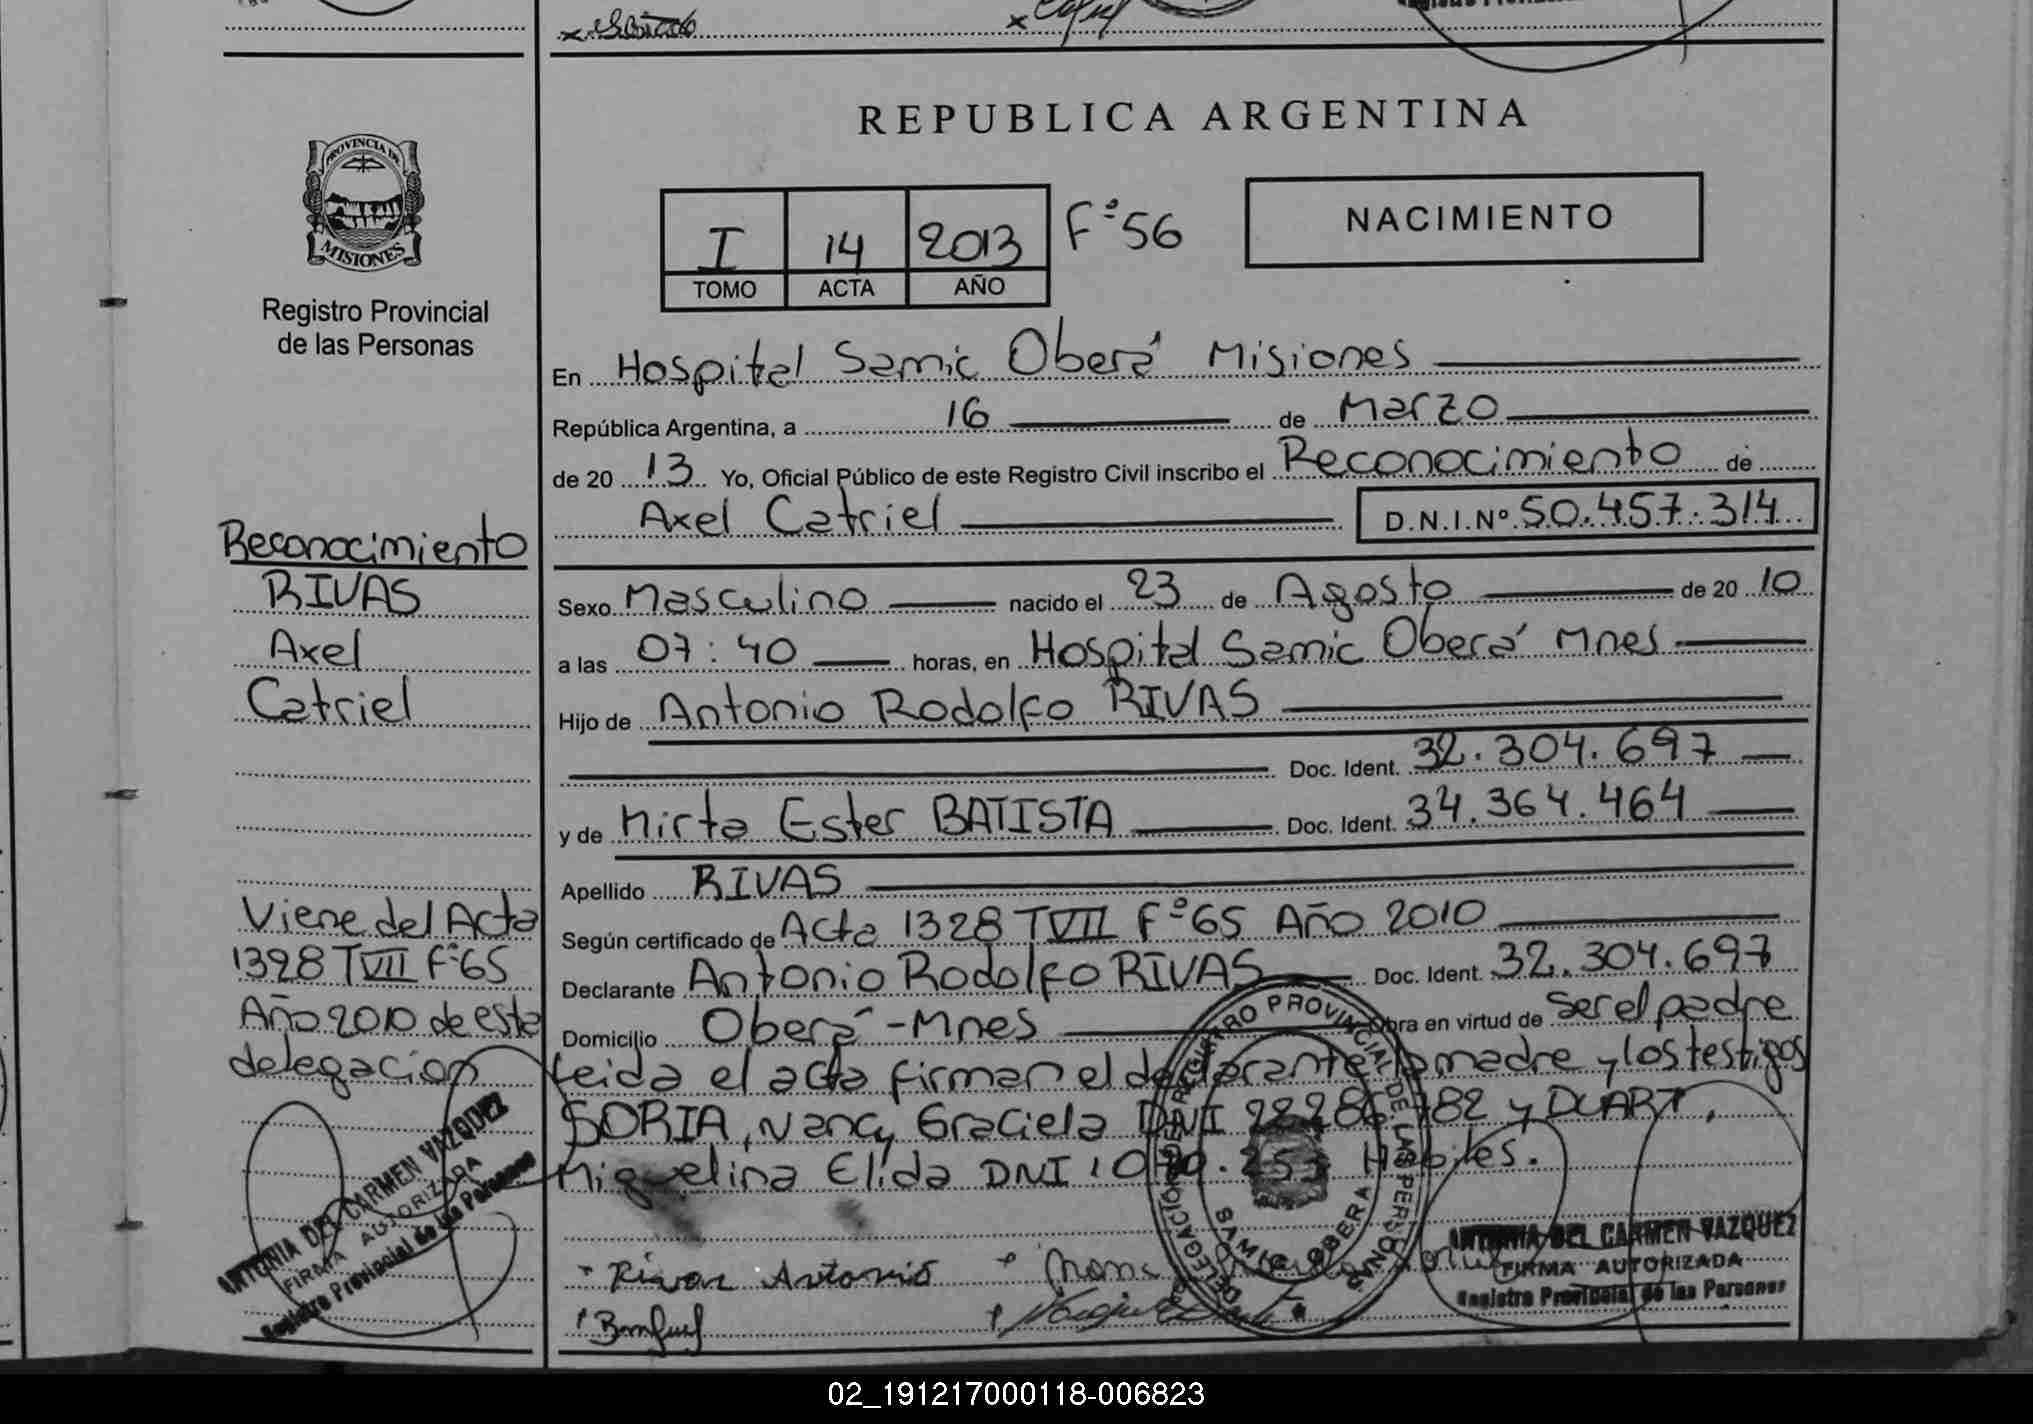 REPUBLICA ARGENTINA
PROVINCIA DE
MISIONES
Registro Provincial
de las Personas
I 14 2013 F° 56
TOMO ACTA AÑO
NACIMIENTO
En Hospital Samic Oberá Misiones
República Argentina, a 16 de Marzo
de 20 13 Yo, Oficial Público de este Registro Civil inscribo el Reconocimiento de
Axel Catriel D.N.I.Nº 50.457.314
Sexo Masculino nacido el 23 de Agosto de 20 10
a las 07:40 horas, en Hospital Samic Oberá Mnes
Hijo de Antonio Rodolfo RIVAS
Doc. Ident. 32.304.697
y de Mirta Ester BATISTA Doc. Ident. 34.364.464
Apellido RIVAS
Según certificado de Acta 1328 TVII F° 65 Año 2010
Declarante Antonio Rodolfo RIVAS Doc. Ident. 32.304.697
Domicilio Oberá - Mnes Obra en virtud de ser el padre
Leida el acta firman el declarante la madre y los testigos
SORIA, Nancy Graciela DNI y DUART,
Miguelina Elida DNI Habiles.
Rivas Antonio
Reconocimiento
RIVAS
Axel
Catriel
Viene del Acta
1328 TVII F° 65
Año 2010 de esta
delegacion
ANTONIA DEL CARMEN VAZQUEZ
FIRMA AUTORIZADA
Registro Provincial de las Personas
REGISTRO PROVINCIAL DE LAS PERSONAS
DELEGACION
SAMIC OBERA
ANTONIA DEL CARMEN VAZQUEZ
FIRMA AUTORIZADA
Registro Provincial de las Personas
02_191217000118-006823